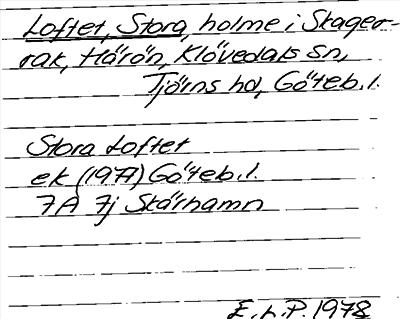 Loftet, Stora, holme i Skager-
rak, Härön, Klövedals sn,
Tjörns hd, Göteb.l.
Stora Loftet
ek (1977) Göteb.l.
7A 7j Skärhamn
E.L.P. 1978